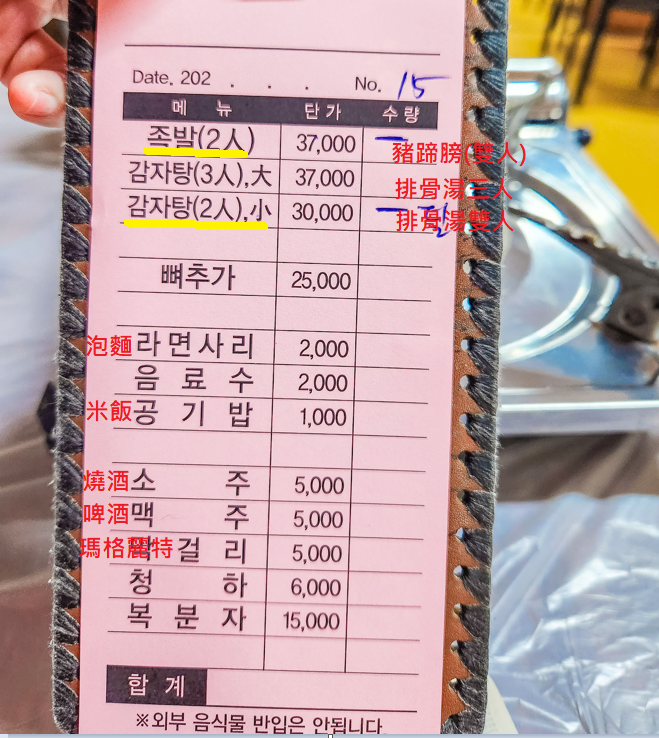 Date. 202 . . . No. 15
메 뉴 단 가 수 량
족발(2人) 37,000 一
豬蹄膀(雙人)
감자탕(3人),大 37,000
排骨湯三人
감자탕(2人),小 30,000 一
排骨湯雙人
뼈추가 25,000
泡麵 라면사리 2,000
음 료 수 2,000
米飯 공 기 밥 1,000
燒酒 소 주 5,000
啤酒 맥 주 5,000
瑪格麗特 걸 리 5,000
청 하 6,000
복 분 자 15,000
합 계
※외부 음식물 반입은 안됩니다